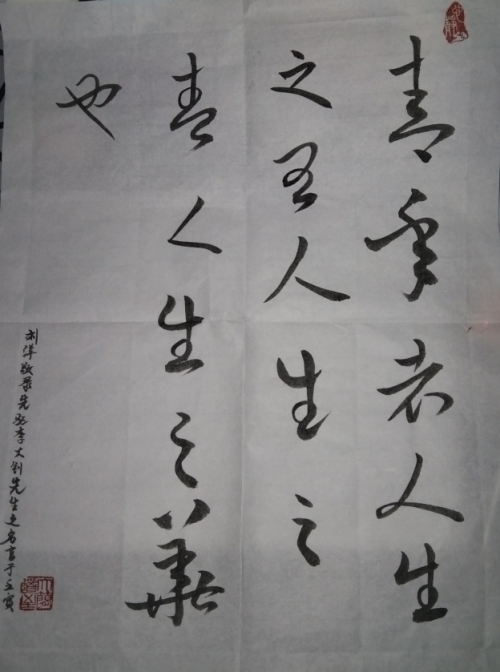 青年者人生
之王人生之
春人生之華
也
刘敬录先驱李大钊先生之名言于壬寅